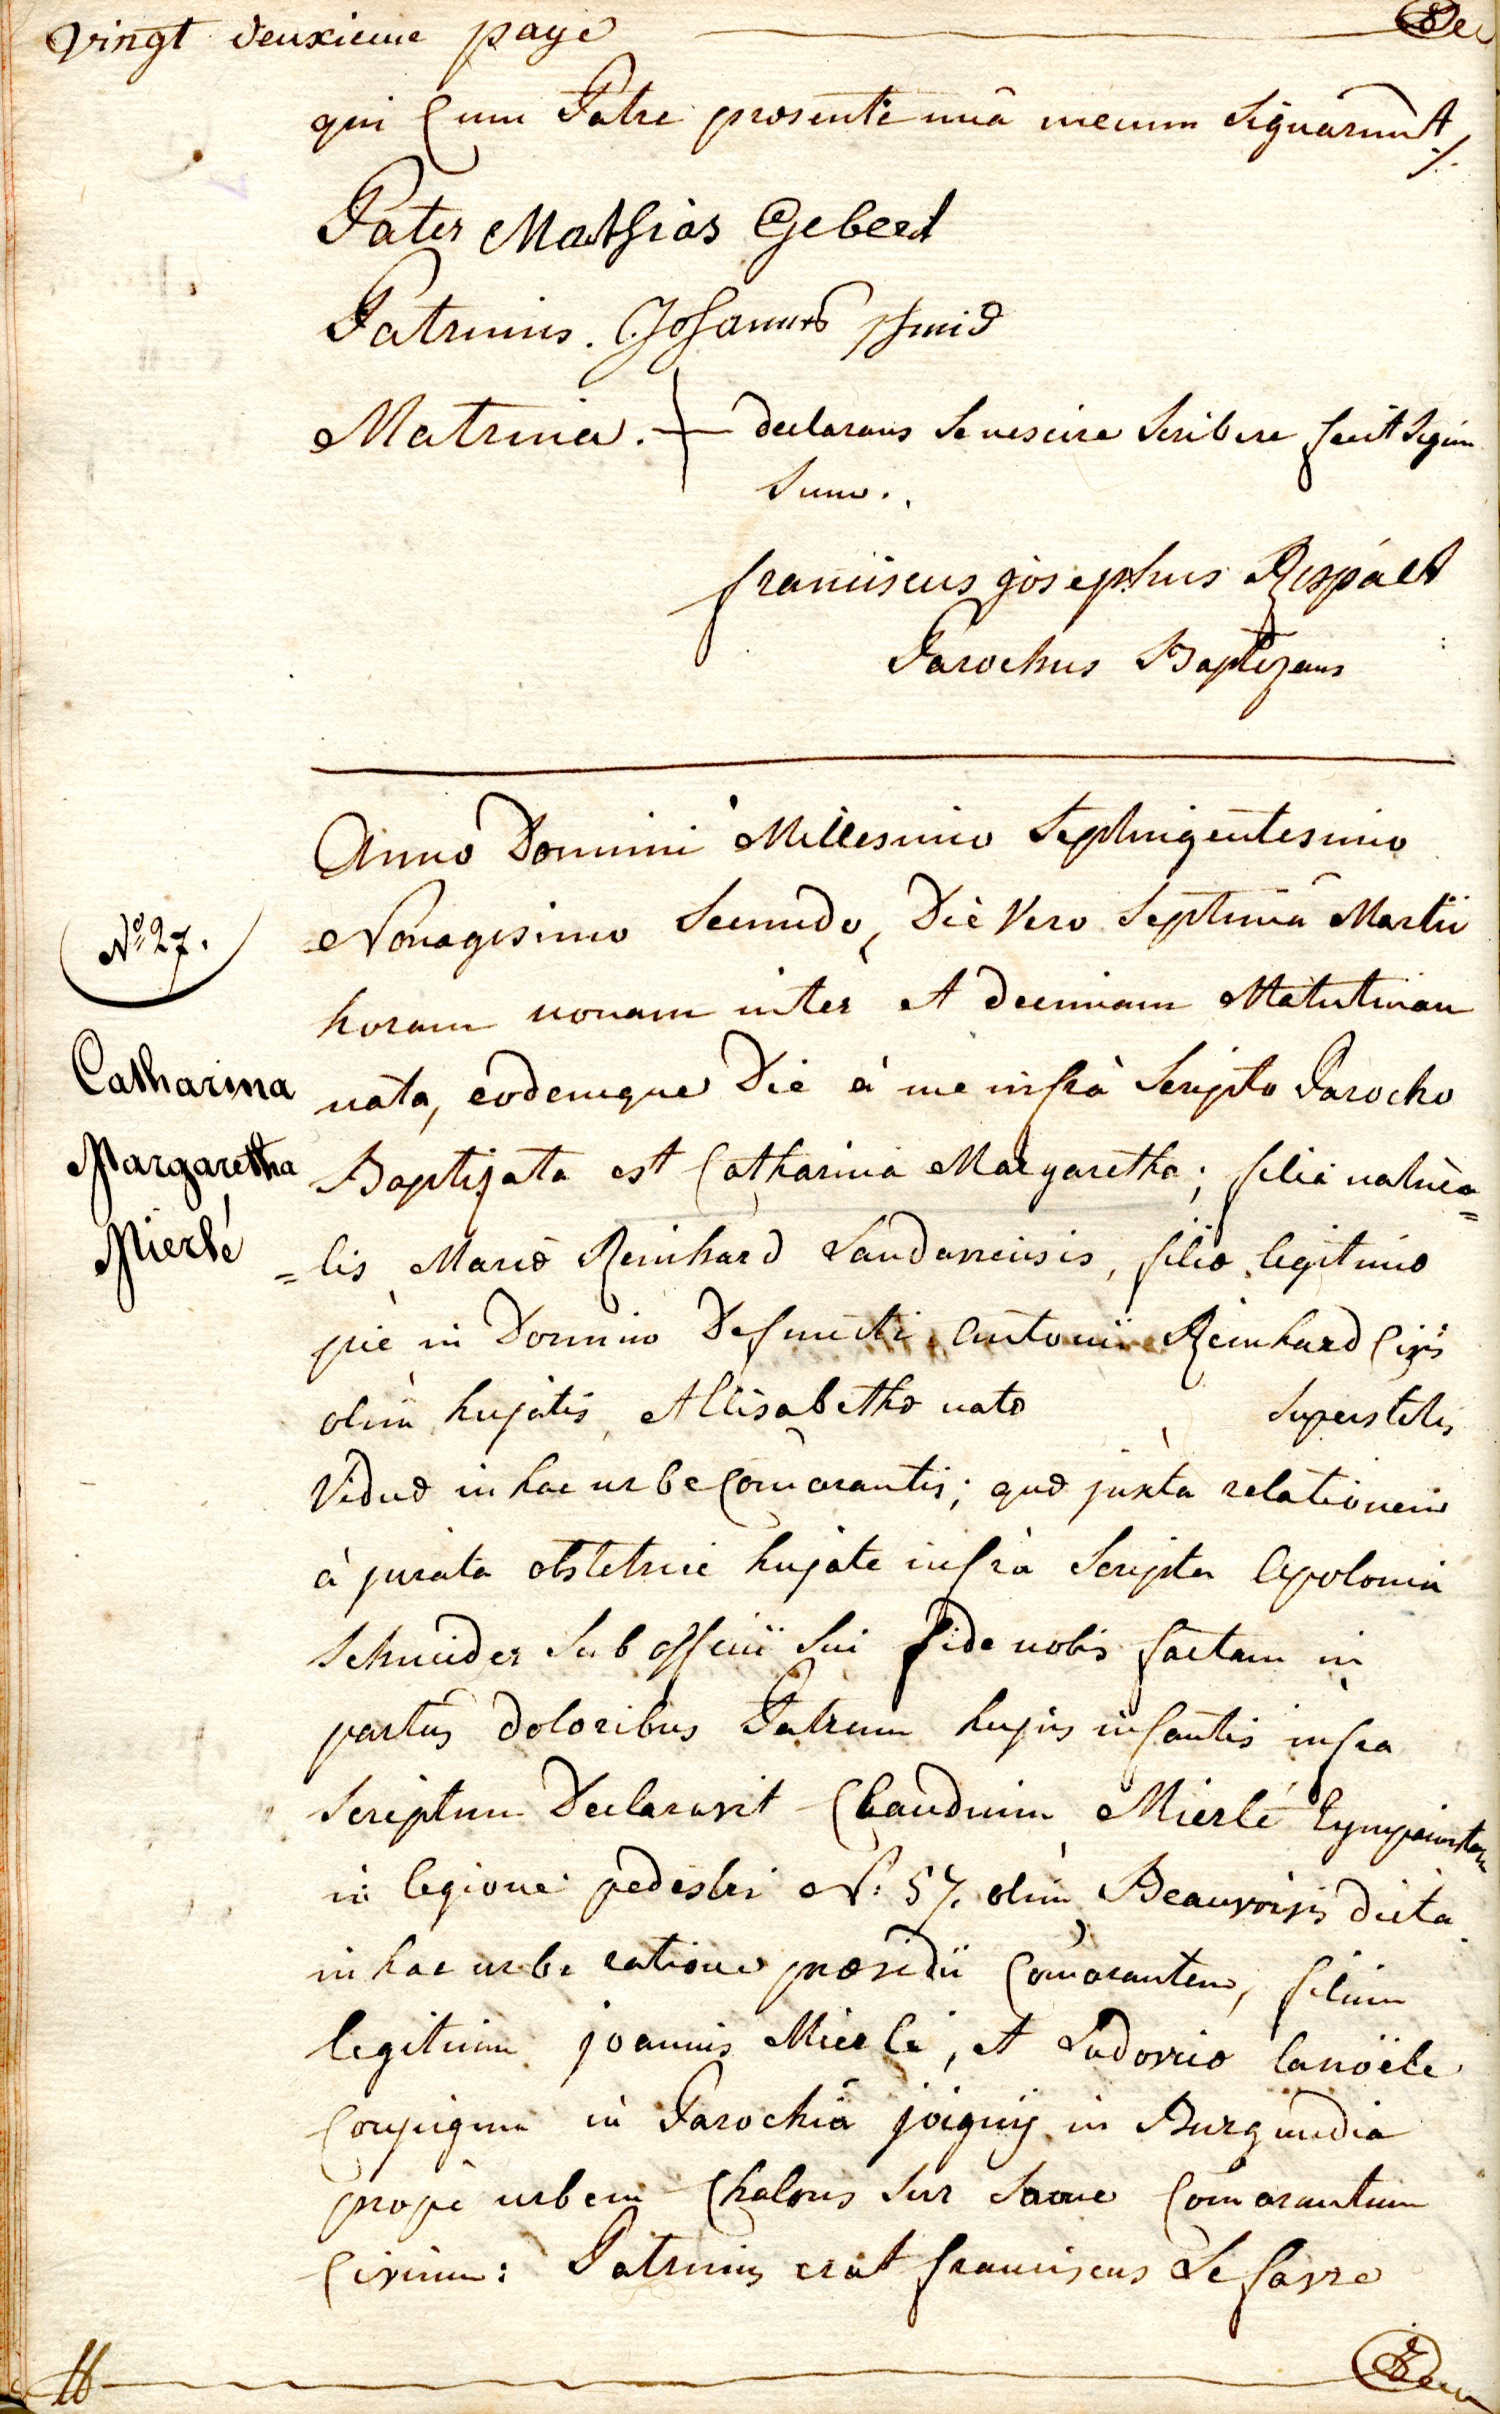 vingt deuxieme page
qui Cum Patre presente unà mecum Signarunt ./.
Pater Mathias Gebert
Patrinus. Johannes schmid
Matrina. + declarans se nescire scribere fecit signum
suum.
franciscus josephus Rispalt
Parochus Baptizans
Anno Domini Millesimo Septingentesimo
Nonagesimo Secundo, Die Vero Septima Martii
horam nonam inter et decimam Matutinam
nata, eodemque Die à me infrà Scripto Parocho
Baptizata est Catharina Margaretha; filia natura=
=lis Mariæ Reinhard Landaviensis, filiæ legitimæ
piè in Domino Defuncti Antonii Reinhard Civis
olim hujatis, et Elisabethæ natæ superstitis
Viduæ in hac urbe Comorantis; quæ juxta relationem
à jurata obstetrice hujate infrà Scripta Apolonia
Schneider sub officii sui fide nobis factam in
partus doloribus Patrem hujus infantis infra
Scriptum Declaravit Claudium Mierlé tympanistam
in legione pedestri N: 57. olim Beauvoisis dicta
in hac urbe ratione præsidii Comorantem, filium
legitimum joannis Mierlé, et Ludovicæ lanoële
Conjugum in Parochiâ joigny in Burgundia
propè urbem Chalons sur Saone Comorantium
Civium: Patrinus erat franciscus Le favre
N° 27.
Catharina
Margaretha
Mierlé